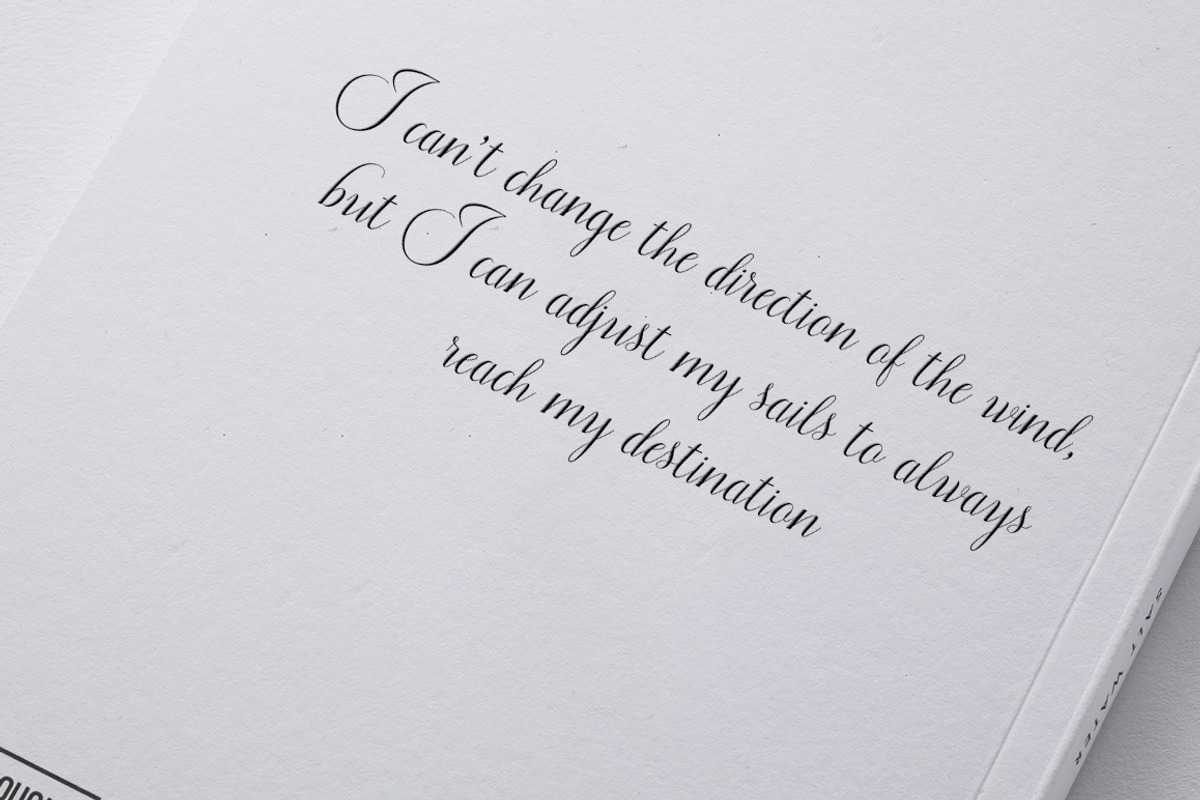 I can't change the direction of the wind,
but I can adjust my sails to always
reach my destination
SALT WATER